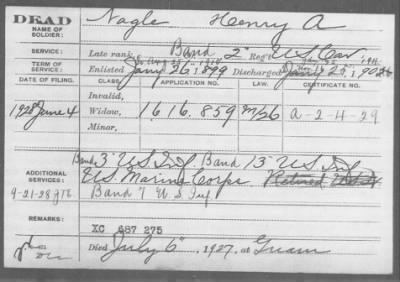 DEAD
NAME OF SOLDIER: Nagle Henry A
SERVICE: Late rank, Band 2" Reg't U.S. Cav.
TERM OF SERVICE: Enlisted Jany 26, 1899 Discharged Jany 25, 190
DATE OF FILING. CLASS. APPLICATION NO. LAW. CERTIFICATE NO.
Invalid,
1928 June 4 Widow, 1616.859 A-2-4-29
Minor,
ADDITIONAL SERVICES: Band 3" U.S. Inf, Band 13" U.S. Inf
U.S. Marine Corps. Retired
9-21-28 Band 7 U.S. Inf
REMARKS: XC 687 275
Died July 6", 1927, at Guam